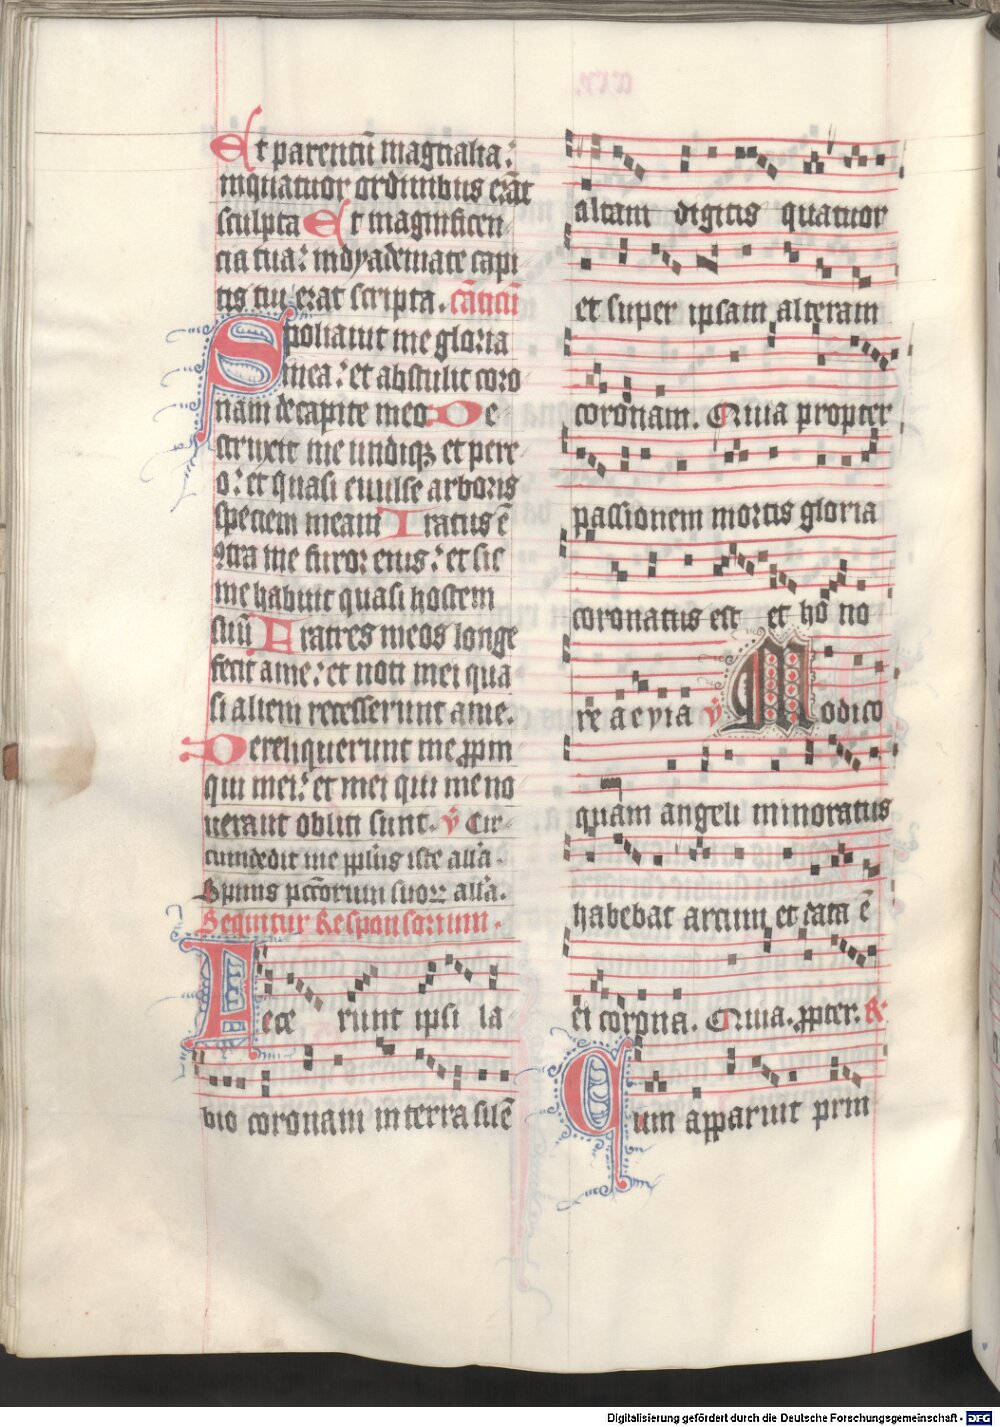 Et parentū magnalia:
inquatuor ordinibus erāt
sculpta Et magnificen
cia tua: indyademate capi
tis tui erat scripta. cāticū
Spoliauit me gloria
mea: et abstulit coro
nam decapite meo: De
struxit me undiqꝫ et pere
o: et quasi euulse arboris
speciem meam Iratus ē
ꝯtra me furor eius: et sic
me habuit quasi hostem
suū Fratres meos longe
fecit ame: et noti mei qua
si alieni recesserunt ame.
Dereliquerunt me ꝓpin
qui mei: et mei qui me no
uerant obliti sunt. v Cir
cumdedit me
Sequitur Responsorium.
Fece runt ipsi la
bio coronam interra silē
altam digitis quatuor
et super ipsam alteram
coronam. Quia propter
passionem mortis gloria
coronatus est et ho no
re aevia v Modico
quam angeli minoratus
habebat arcum et data ē
ei corona. Quia. ꝓpter. R
Qum apparuit prin
Digitalisierung gefördert durch die Deutsche Forschungsgemeinschaft - DFG